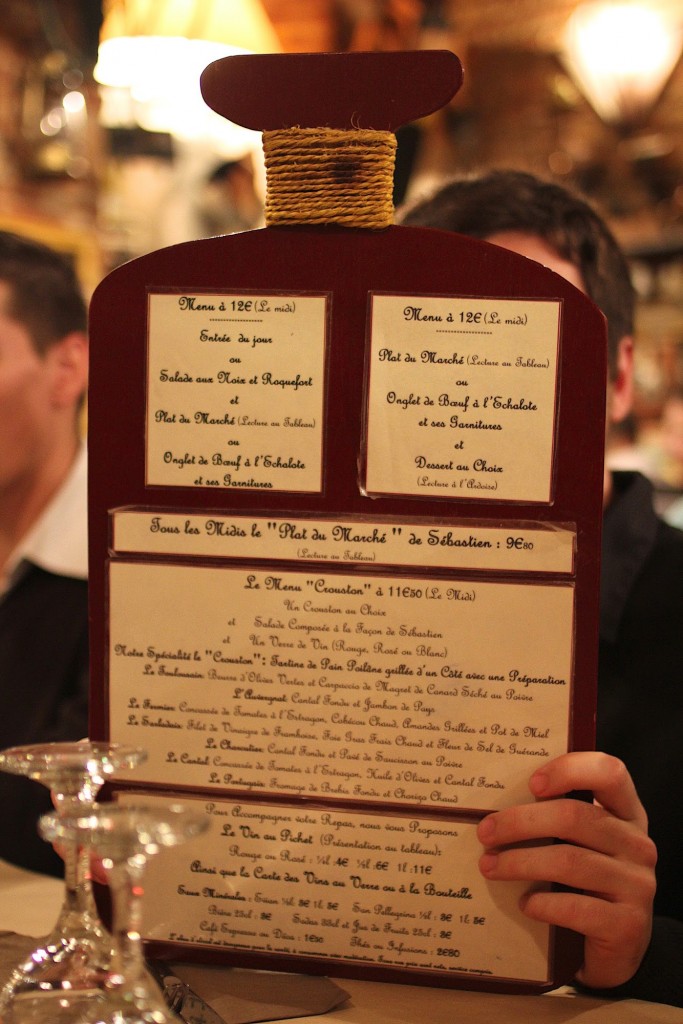 Menu à 12€ (Le midi)
Entrée du jour
ou
Salade aux Noix et Roquefort
et
Plat du Marché (Lecture au Tableau)
ou
Onglet de Bœuf à l'Echalote
et ses Garnitures
Menu à 12€ (Le midi)
Plat du Marché (Lecture au Tableau)
ou
Onglet de Bœuf à l'Echalote
et ses Garnitures
et
Dessert au Choix
(Lecture à l'Ardoise)
Tous les Midis le "Plat du Marché" de Sébastien : 9€80
(Lecture au Tableau)
Le Menu "Crouston" à 11€50 (Le Midi)
Un Crouston au Choix
et Salade Composée à la Façon de Sébastien
et Un Verre de Vin (Rouge, Rosé ou Blanc)
Notre Spécialité le "Crouston": Tartine de Pain Poilâne grillée d'un Côté avec une Préparation
Le Toulousain: Beurre d'Olives Vertes et Carpaccio de Magret de Canard Séché au Poivre
L'Auvergnat: Cantal Fondu et Jambon de Pays
Le Fermier: Concassée de Tomates à l'Estragon, Cabécou Chaud, Amandes Grillées et Pot de Miel
Le Sarladais: Filet de Vinaigre de Framboise, Foie Gras Frais Chaud et Fleur de Sel de Guérande
Le Charcutier: Cantal Fondu et Pavé de Saucisson au Poivre
Le Cantal: Concassée de Tomates à l'Estragon, Huile d'Olives et Cantal Fondu
Le Portugais: Fromage de Brebis Fondu et Chorizo Chaud
Pour Accompagner votre Repas, nous vous Proposons
Le Vin au Pichet (Présentation au tableau):
Rouge ou Rosé : ¼l 4€ ½l : 6€ 1l : 11€
Ainsi que la Carte des Vins au Verre ou à la Bouteille
Eaux Minérales : Evian ½l 3€ 1l 5€ San Pellegrino ½l : 3€ 1l 5€
Bière 25cl : 3€ Sodas 33cl et Jus de Fruits 25cl : 3€
Café Expresso ou Déca : 1€50 Thés ou Infusions : 2€80